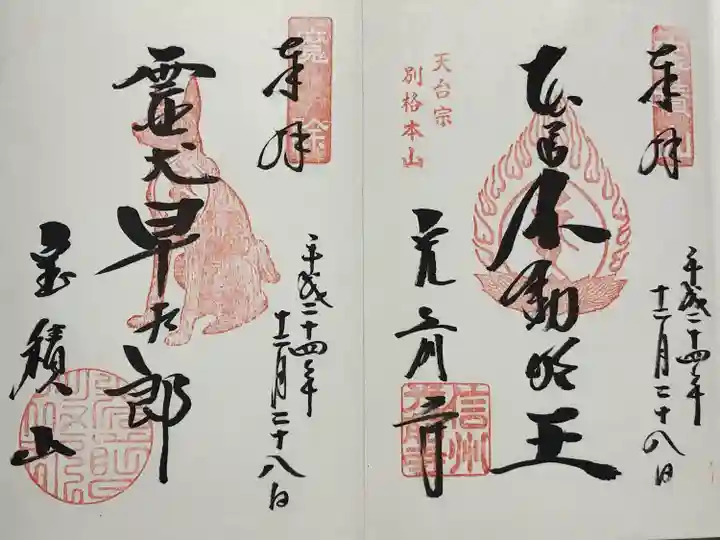 奉拝
本尊不動明王
天台宗
別格本山
光前寺
信州
光前寺
平成二十四年
十二月二十八日
奉拝
魔除
霊犬早太郎
宝積山
平成二十四年
十二月二十八日